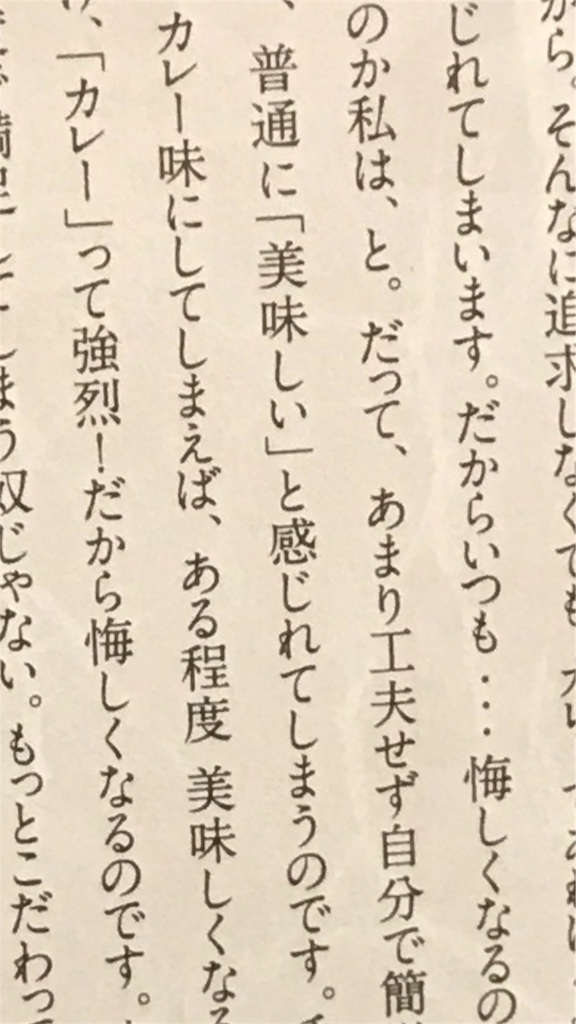 から。そんなに追求しなくても
じれてしまいます。だからいつも・・・悔しくなるの
のか私は、と。だって、あまり工夫せず自分で簡
、普通に「美味しい」と感じれてしまうのです。
カレー味にしてしまえば、ある程度 美味しくなる
、「カレー」って強烈！だから悔しくなるのです。
しまう奴じゃない。もっとこだわって